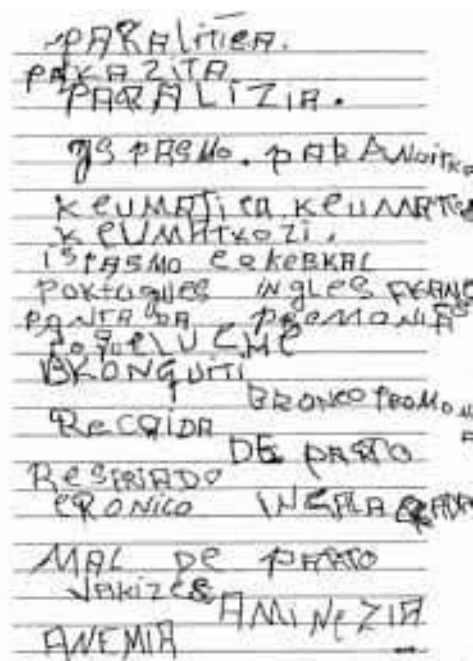 PARALITICA.
PAKAZITA
PARALIZIA.
ISPASMO. PARANOITKO
KEUMATICA KEUMATICA
KEUMATKOZI.
ISPASMO CEKEBKAL
POKTUGUES INGLES FKANCE
PANTADA PEOMONIA
BKONQUITI
BRONCOPEOMONIA
RECAIDA
DE PARTO
RESFRIADO
CRONICO
MAL DE PARTO
VAKIZES
AMINEZIA
ANEMIA